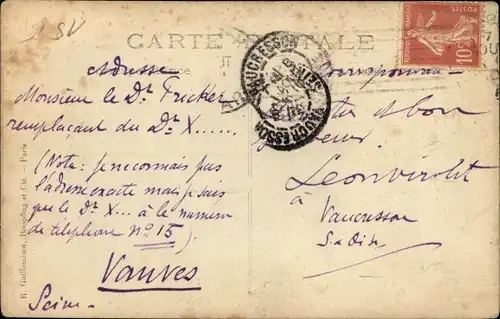 SV
CARTE POSTALE
Adresse
Correspondance
Monsieur le Dr Fricker
remplaçant du Dr X......
(Note: je ne connais pas
l'adresse exacte mais je sais
que le Dr X... a le numero
de téléphone no 15).
Vanves
Seine
et bon
Léon
à
Vaucresson
S. et Oise
VAUCRESSON
VAUCRESSON
10c
R. Guilleminot, Bœspflug et Cie. - Paris